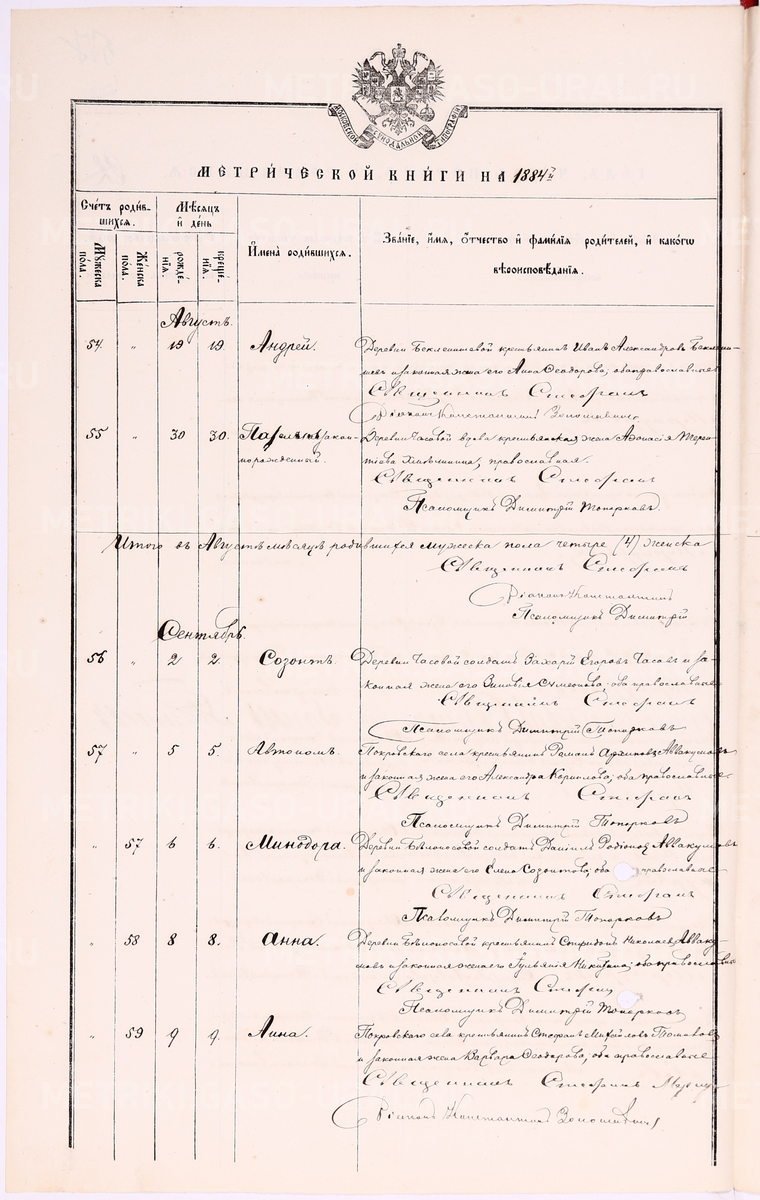 МОСКОВСКОЙ СѴНОДАЛЬНОЙ ТИПОГРАФІИ
МЕТРИЧЕСКОЙ КНИГИ НА 1884 г.
Счетъ родив-шихся.
Мѣсяцъ и день
Мужеска пола.
Женска пола.
рожде-нія.
креще-нія.
Имена родившихся.
Званіе, имя, отчество и фамилія родителей, и какого вѣроисповѣданія.
Августъ.
54 " 19 19. Андрей. Деревни Беклемишевой крестьянинъ Иванъ Александровъ Беклеми-
шевъ и законная жена его Анна Ѳеодорова; оба православные
Священникъ Стефанъ
Діаконъ Константинъ
55 " 30 30. Павелъ незакон- Деревни Часовой вдова крестьянская жена Аѳанасія Терен-
норожденный. тьева православная.
Священникъ Стефанъ
Псаломщикъ Димитрій Топорковъ.
Итого въ Августѣ мѣсяцѣ родившихся мужеска пола четыре (4) женска
Священникъ Стефанъ
Діаконъ Константинъ
Псаломщикъ Димитрій
Сентябрь.
56 " 2 2. Созонтъ. Деревни Часовой солдатъ Захарій Егоровъ Часовъ и за-
конная жена его Зиновія Симеонова; оба православные
Священникъ Стефанъ
Псаломщикъ Димитрій Топорковъ
57 " 5 5. Автономъ. Покровскаго села крестьянинъ Романъ Аввакумовъ
и законная жена его Александра Корнилова; оба православные
Священникъ Стефанъ
Псаломщикъ Димитрій Топорковъ
" 57 6 6. Минодора. Деревни Бѣлоносовой солдатъ Даніилъ Родіоновъ Аввакумовъ
и законная жена его Елена Созонтова; оба православные
Священникъ Стефанъ
Псаломщикъ Димитрій Топорковъ
" 58 8 8. Анна. Деревни Бѣлоносовой крестьянинъ Спиридонъ Николаевъ Авваку-
мовъ и законная жена его Никитина; оба православные
Священникъ Стефанъ
Псаломщикъ Димитрій Топорковъ
" 59 9 9. Анна. Покровскаго села крестьянинъ Стефанъ Михайловъ
и законная жена Варвара Ѳеодорова, оба православные
Священникъ Стефанъ
Діаконъ Константинъ